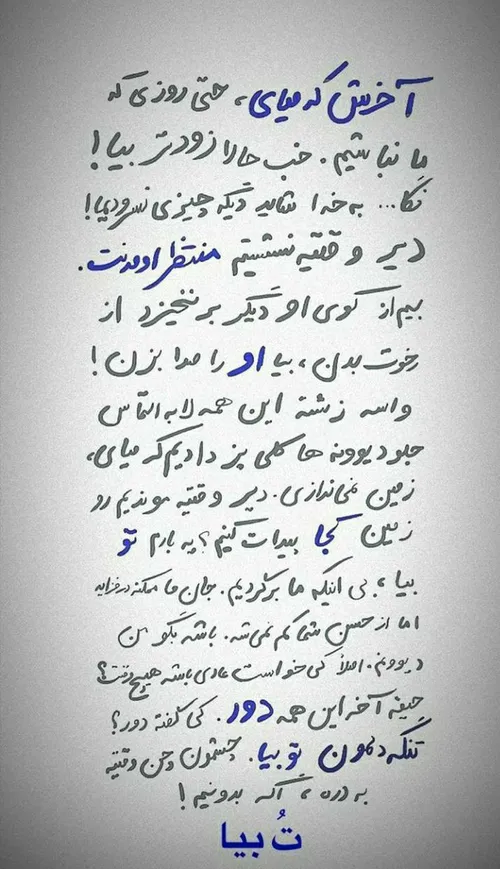 آخرش که میای، حتی روزی که
ما نباشیم. خب حالا زودتر بیا!
نگا... به خدا شاید دیگه چیزی نسرودیما!
دیر وقتیه نشستیم منتظر اومدنت.
بیم از کوی او دیگر برنخیزد از
رخوت بدن، بیا او را صدا بزن!
واسه زشته این همه لابه التماس
جبو دیوونه ها کلی پز دادیم که میای،
زمین نمی‌اندازی. دیر وقتیه موندیم رو
زمین کجا پیدات کنیم؟ یه بارم تو
بیا، بی اینکه ما برگردیم. جان ما ممکنه
اما از حسن شما کم نمی‌شه. باشه بگو من
دیوونم. اصلاً کی خواست عادی باشه هیچ وقت؟
حیفه آخه این همه دور. کی گفته دور؟
تنگه دلمون تو بیا. چشمون وقتیه
به دره، اگه بدونیم!
تُ بیا